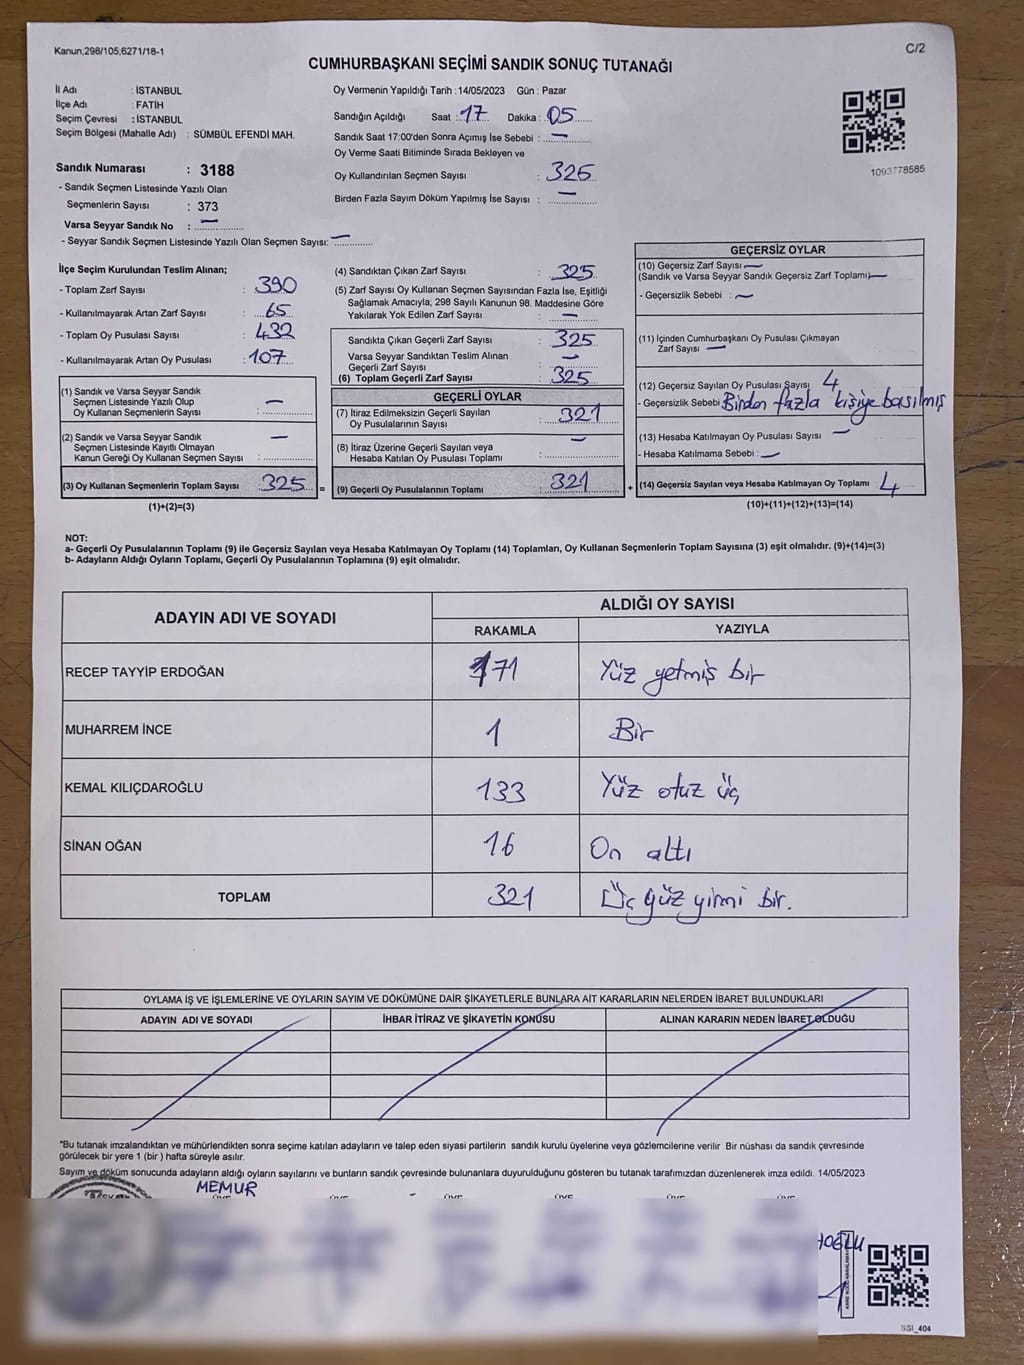 Kanun,298/105,6271/18-1
C/2
CUMHURBAŞKANI SEÇİMİ SANDIK SONUÇ TUTANAĞI
İl Adı : İSTANBUL
İlçe Adı : FATİH
Seçim Çevresi : İSTANBUL
Seçim Bölgesi (Mahalle Adı) : SÜMBÜL EFENDİ MAH.
Sandık Numarası : 3188
- Sandık Seçmen Listesinde Yazılı Olan
Seçmenlerin Sayısı : 373
Varsa Seyyar Sandık No : —
- Seyyar Sandık Seçmen Listesinde Yazılı Olan Seçmen Sayısı: —
Oy Vermenin Yapıldığı Tarih :14/05/2023 Gün : Pazar
Sandığın Açıldığı Saat : 17 Dakika : 05
Sandık Saat 17:00'den Sonra Açımış İse Sebebi : —
Oy Verme Saati Bitiminde Sırada Bekleyen ve
Oy Kullandırılan Seçmen Sayısı : 325
Birden Fazla Sayım Döküm Yapılmış İse Sayısı : —
1093778585
İlçe Seçim Kurulundan Teslim Alınan;
- Toplam Zarf Sayısı : 390
- Kullanılmayarak Artan Zarf Sayısı : 65
- Toplam Oy Pusulası Sayısı : 432
- Kullanılmayarak Artan Oy Pusulası : 107
(1) Sandık ve Varsa Seyyar Sandık
Seçmen Listesinde Yazılı Olup
Oy Kullanan Seçmenlerin Sayısı : —
(2) Sandık ve Varsa Seyyar Sandık
Seçmen Listesinde Kayıtlı Olmayan
Kanun Gereği Oy Kullanan Seçmen Sayısı : —
(3) Oy Kullanan Seçmenlerin Toplam Sayısı 325 =
(1)+(2)=(3)
(4) Sandıktan Çıkan Zarf Sayısı : 325
(5) Zarf Sayısı Oy Kullanan Seçmen Sayısından Fazla İse, Eşitliği
Sağlamak Amacıyla; 298 Sayılı Kanunun 98. Maddesine Göre
Yakılarak Yok Edilen Zarf Sayısı : —
Sandıkta Çıkan Geçerli Zarf Sayısı : 325
Varsa Seyyar Sandıktan Teslim Alınan
Geçerli Zarf Sayısı : —
(6) Toplam Geçerli Zarf Sayısı : 325
GEÇERLİ OYLAR
(7) İtiraz Edilmeksizin Geçerli Sayılan
Oy Pusulalarının Sayısı : 321
(8) İtiraz Üzerine Geçerli Sayılan veya
Hesaba Katılan Oy Pusulası Toplamı : —
(9) Geçerli Oy Pusulalarının Toplamı : 321 +
GEÇERSİZ OYLAR
(10) Geçersiz Zarf Sayısı —
(Sandık ve Varsa Seyyar Sandık Geçersiz Zarf Toplamı) —
- Geçersizlik Sebebi : —
(11) İçinden Cumhurbaşkanı Oy Pusulası Çıkmayan
Zarf Sayısı —
(12) Geçersiz Sayılan Oy Pusulası Sayısı 4
- Geçersizlik Sebebi Birden fazla kişiye basılmış
(13) Hesaba Katılmayan Oy Pusulası Sayısı —
- Hesaba Katılmama Sebebi : —
(14) Geçersiz Sayılan veya Hesaba Katılmayan Oy Toplamı 4
(10)+(11)+(12)+(13)=(14)
NOT:
a- Geçerli Oy Pusulalarının Toplamı (9) ile Geçersiz Sayılan veya Hesaba Katılmayan Oy Toplamı (14) Toplamları, Oy Kullanan Seçmenlerin Toplam Sayısına (3) eşit olmalıdır. (9)+(14)=(3)
b- Adayların Aldığı Oyların Toplamı, Geçerli Oy Pusulalarının Toplamına (9) eşit olmalıdır.
ADAYIN ADI VE SOYADI ALDIĞI OY SAYISI
RAKAMLA YAZIYLA
RECEP TAYYİP ERDOĞAN 171 Yüz yetmiş bir
MUHARREM İNCE 1 Bir
KEMAL KILIÇDAROĞLU 133 Yüz otuz üç
SİNAN OĞAN 16 On altı
TOPLAM 321 Üç yüz yirmi bir.
OYLAMA İŞ VE İŞLEMLERİNE VE OYLARIN SAYIM VE DÖKÜMÜNE DAİR ŞİKAYETLERLE BUNLARA AİT KARARLARIN NELERDEN İBARET BULUNDUKLARI
ADAYIN ADI VE SOYADI İHBAR İTİRAZ VE ŞİKAYETİN KONUSU ALINAN KARARIN NEDEN İBARET OLDUĞU
*Bu tutanak imzalandıktan ve mühürlendikten sonra seçime katılan adayların ve talep eden siyasi partilerin sandık kurulu üyelerine veya gözlemcilerine verilir. Bir nüshası da sandık çevresinde
görülecek bir yere 1 (bir ) hafta süreyle asılır.
Sayım ve döküm sonucunda adayların aldığı oyların sayılarını ve bunların sandık çevresinde bulunanlara duyurulduğunu gösteren bu tutanak tarafımızdan düzenlenerek imza edildi. 14/05/2023
MEMUR
SSI_404